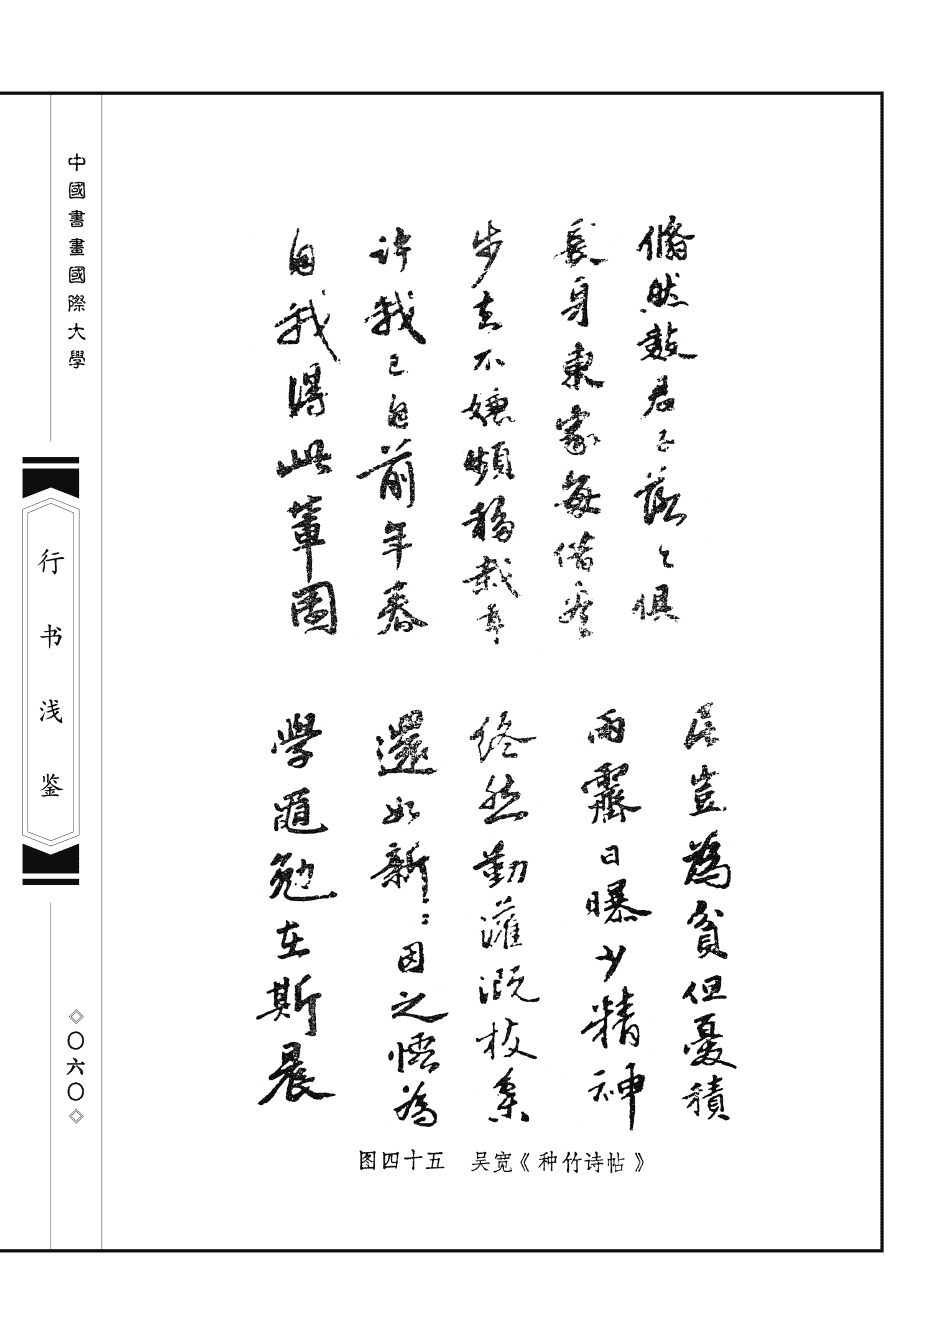 中國書畫國際大學
行书浅鉴
〇六〇
翛然数君子落々俱
長身東家每借看
步去不嫌頻移栽幸
許我已自前年春
自我得此輩園
居豈為貧但憂積
雨霽日曝少精神
終然勤灌溉枝葉
還如新因之悟為
學黽勉在斯晨
图四十五 吴宽《种竹诗帖》